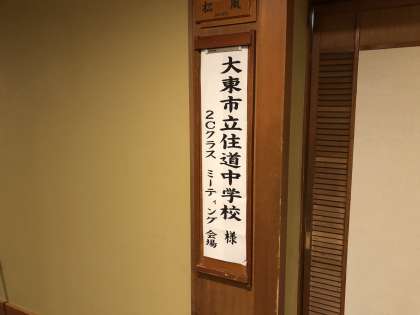 松風
大東市立住道中学校 様
2Cクラス ミーティング会場